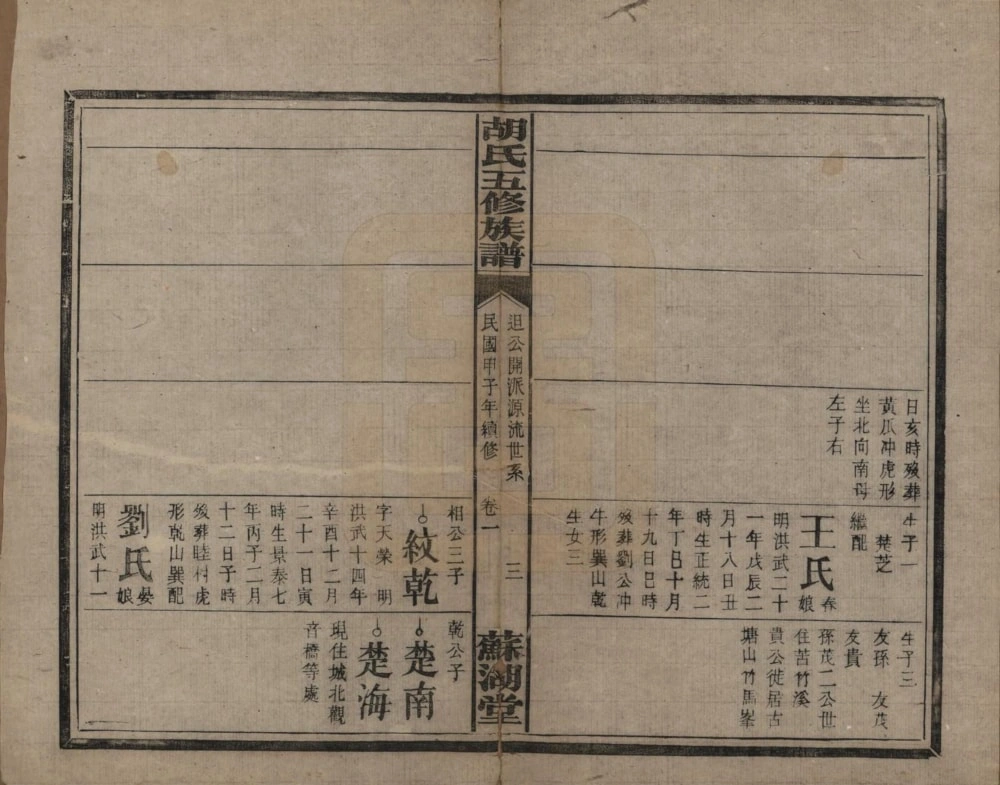 日亥時歿葬
黃瓜冲虎形
坐北向南母
左子右
生子一
楚芝
繼配
王氏春娘
明洪武二十
一年戊辰二
月十八日丑
時生正統二
年丁巳十月
十九日巳時
歿葬劉公冲
牛形巽山乾
生女三
生子三
友孫 友茂
友貴
孫茂二公世
住苦竹溪
貴公徙居古
塘山竹馬峯
胡氏五修族譜
迫公開派源流世系
民國甲子年續修 卷一
三
蘇湖堂
相公三子
紋乾
字天榮 明
洪武十四年
辛酉十二月
二十一日寅
時生景泰七
年丙子二月
十二日子時
歿葬睦村虎
形乾山巽配
劉氏晏娘
明洪武十一
乾公子
楚南
楚海
現住城北觀
音橋等處